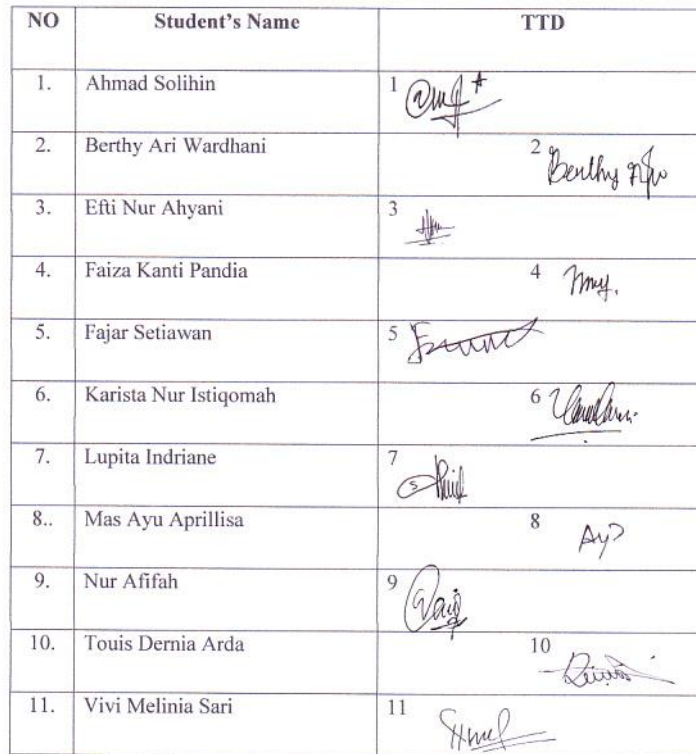 NO Student's Name TTD
1. Ahmad Solihin 1
2. Berthy Ari Wardhani 2 Berthy
3. Efti Nur Ahyani 3
4. Faiza Kanti Pandia 4
5. Fajar Setiawan 5
6. Karista Nur Istiqomah 6
7. Lupita Indriane 7
8.. Mas Ayu Aprillisa 8 Ay
9. Nur Afifah 9
10. Touis Dernia Arda 10
11. Vivi Melinia Sari 11